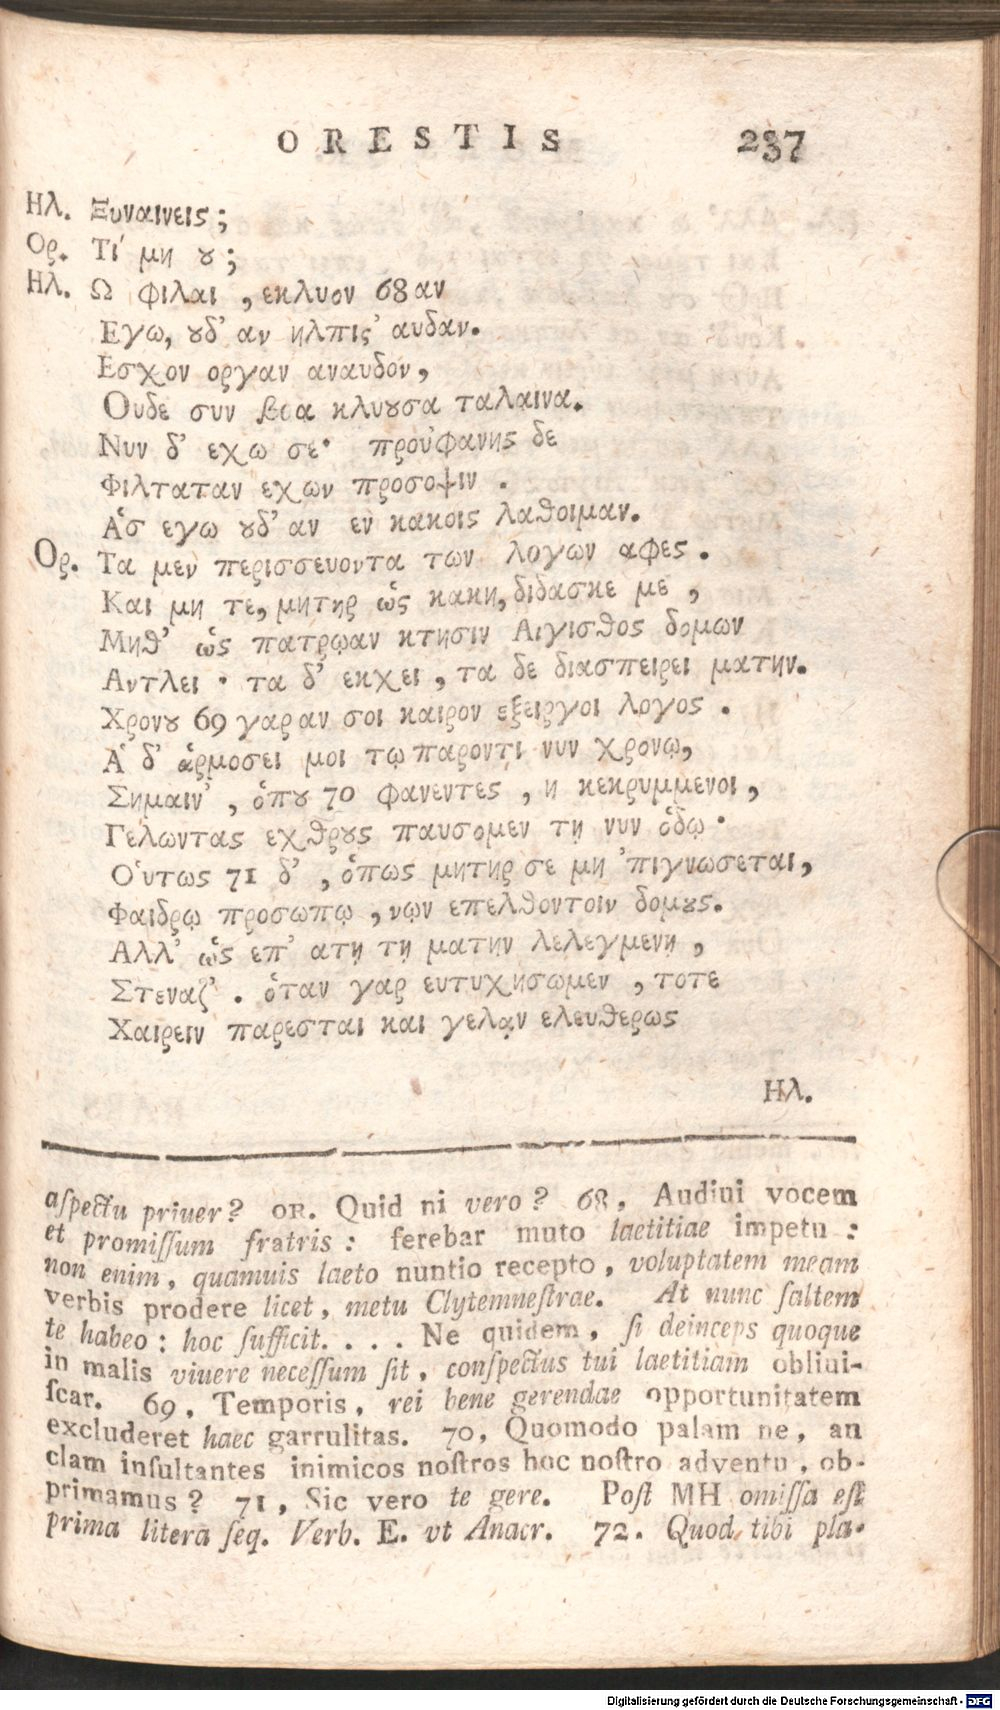 ORESTIS 237
Ηλ. Ξυναινεις;
Ορ. Τί μη ȣ;
Ηλ. Ω φιλαι , εκλυον 68 αν
Εγω, ȣδ' αν ηλπις' αυδαν.
Εσχον οργαν αναυδον,
Ουδε συν βοα κλυȣσα ταλαινα.
Νυν δ' εχω σε· πρȣ̓φανης δε
Φιλταταν εχων προσοψιν .
Ἁσ εγω ȣδ' αν εν κακοις λαθοιμαν.
Ορ. Τα μεν περισσευοντα των λογων αφες .
Και μη τε, μητηρ ὡς κακη, διδασκε με ,
Μηθ' ὡς πατρῳαν κτησιν Αιγισθος δομων
Αντλει · τα δ' εκχει , τα δε διασπειρει ματην.
Χρονȣ 69 γαρ αν σοι καιρον εξειργοι λογος .
Ἁ δ' ἁρμοσει μοι τῳ παροντι νυν χρονῳ,
Σημαιν' , ὁπȣ 70 φανεντες , η κεκρυμμενοι ,
Γελωντας εχθρȣς παυσομεν τῃ νυν ὁδῳ·
Οὑτως 71 δ' , ὁπως μητηρ σε μη 'πιγνωσεται,
Φαιδρῳ προσωπῳ , νῳν επελθοντοιν δομȣς.
Αλλ' ὡς επ' ατῃ τῃ ματην λελεγμενῃ ,
Στεναζ' . ὁταν γαρ ευτυχησωμεν , τοτε
Χαιρειν παρεσται και γελᾳν ελευθερως
Ηλ.
aſpectu priuer? OR. Quid ni vero? 68, Audiui vocem
et promiſſum fratris: ferebar muto laetitiae impetu :
non enim, quamuis laeto nuntio recepto, voluptatem meam
verbis prodere licet, metu Clytemneſtrae. At nunc ſaltem
te habeo: hoc ſufficit. . . . Ne quidem, ſi deinceps quoque
in malis viuere neceſſum ſit, conſpectus tui laetitiam obliui-
ſcar. 69, Temporis, rei bene gerendae opportunitatem
excluderet haec garrulitas. 70, Quomodo palam ne, an
clam inſultantes inimicos noſtros hoc noſtro adventu, ob-
primamus? 71, Sic vero te gere. Poſt MH omiſſa eſt
prima litera ſeq. Verb. E. vt Anacr. 72. Quod tibi pla-
Digitalisierung gefördert durch die Deutsche Forschungsgemeinschaft - DFG